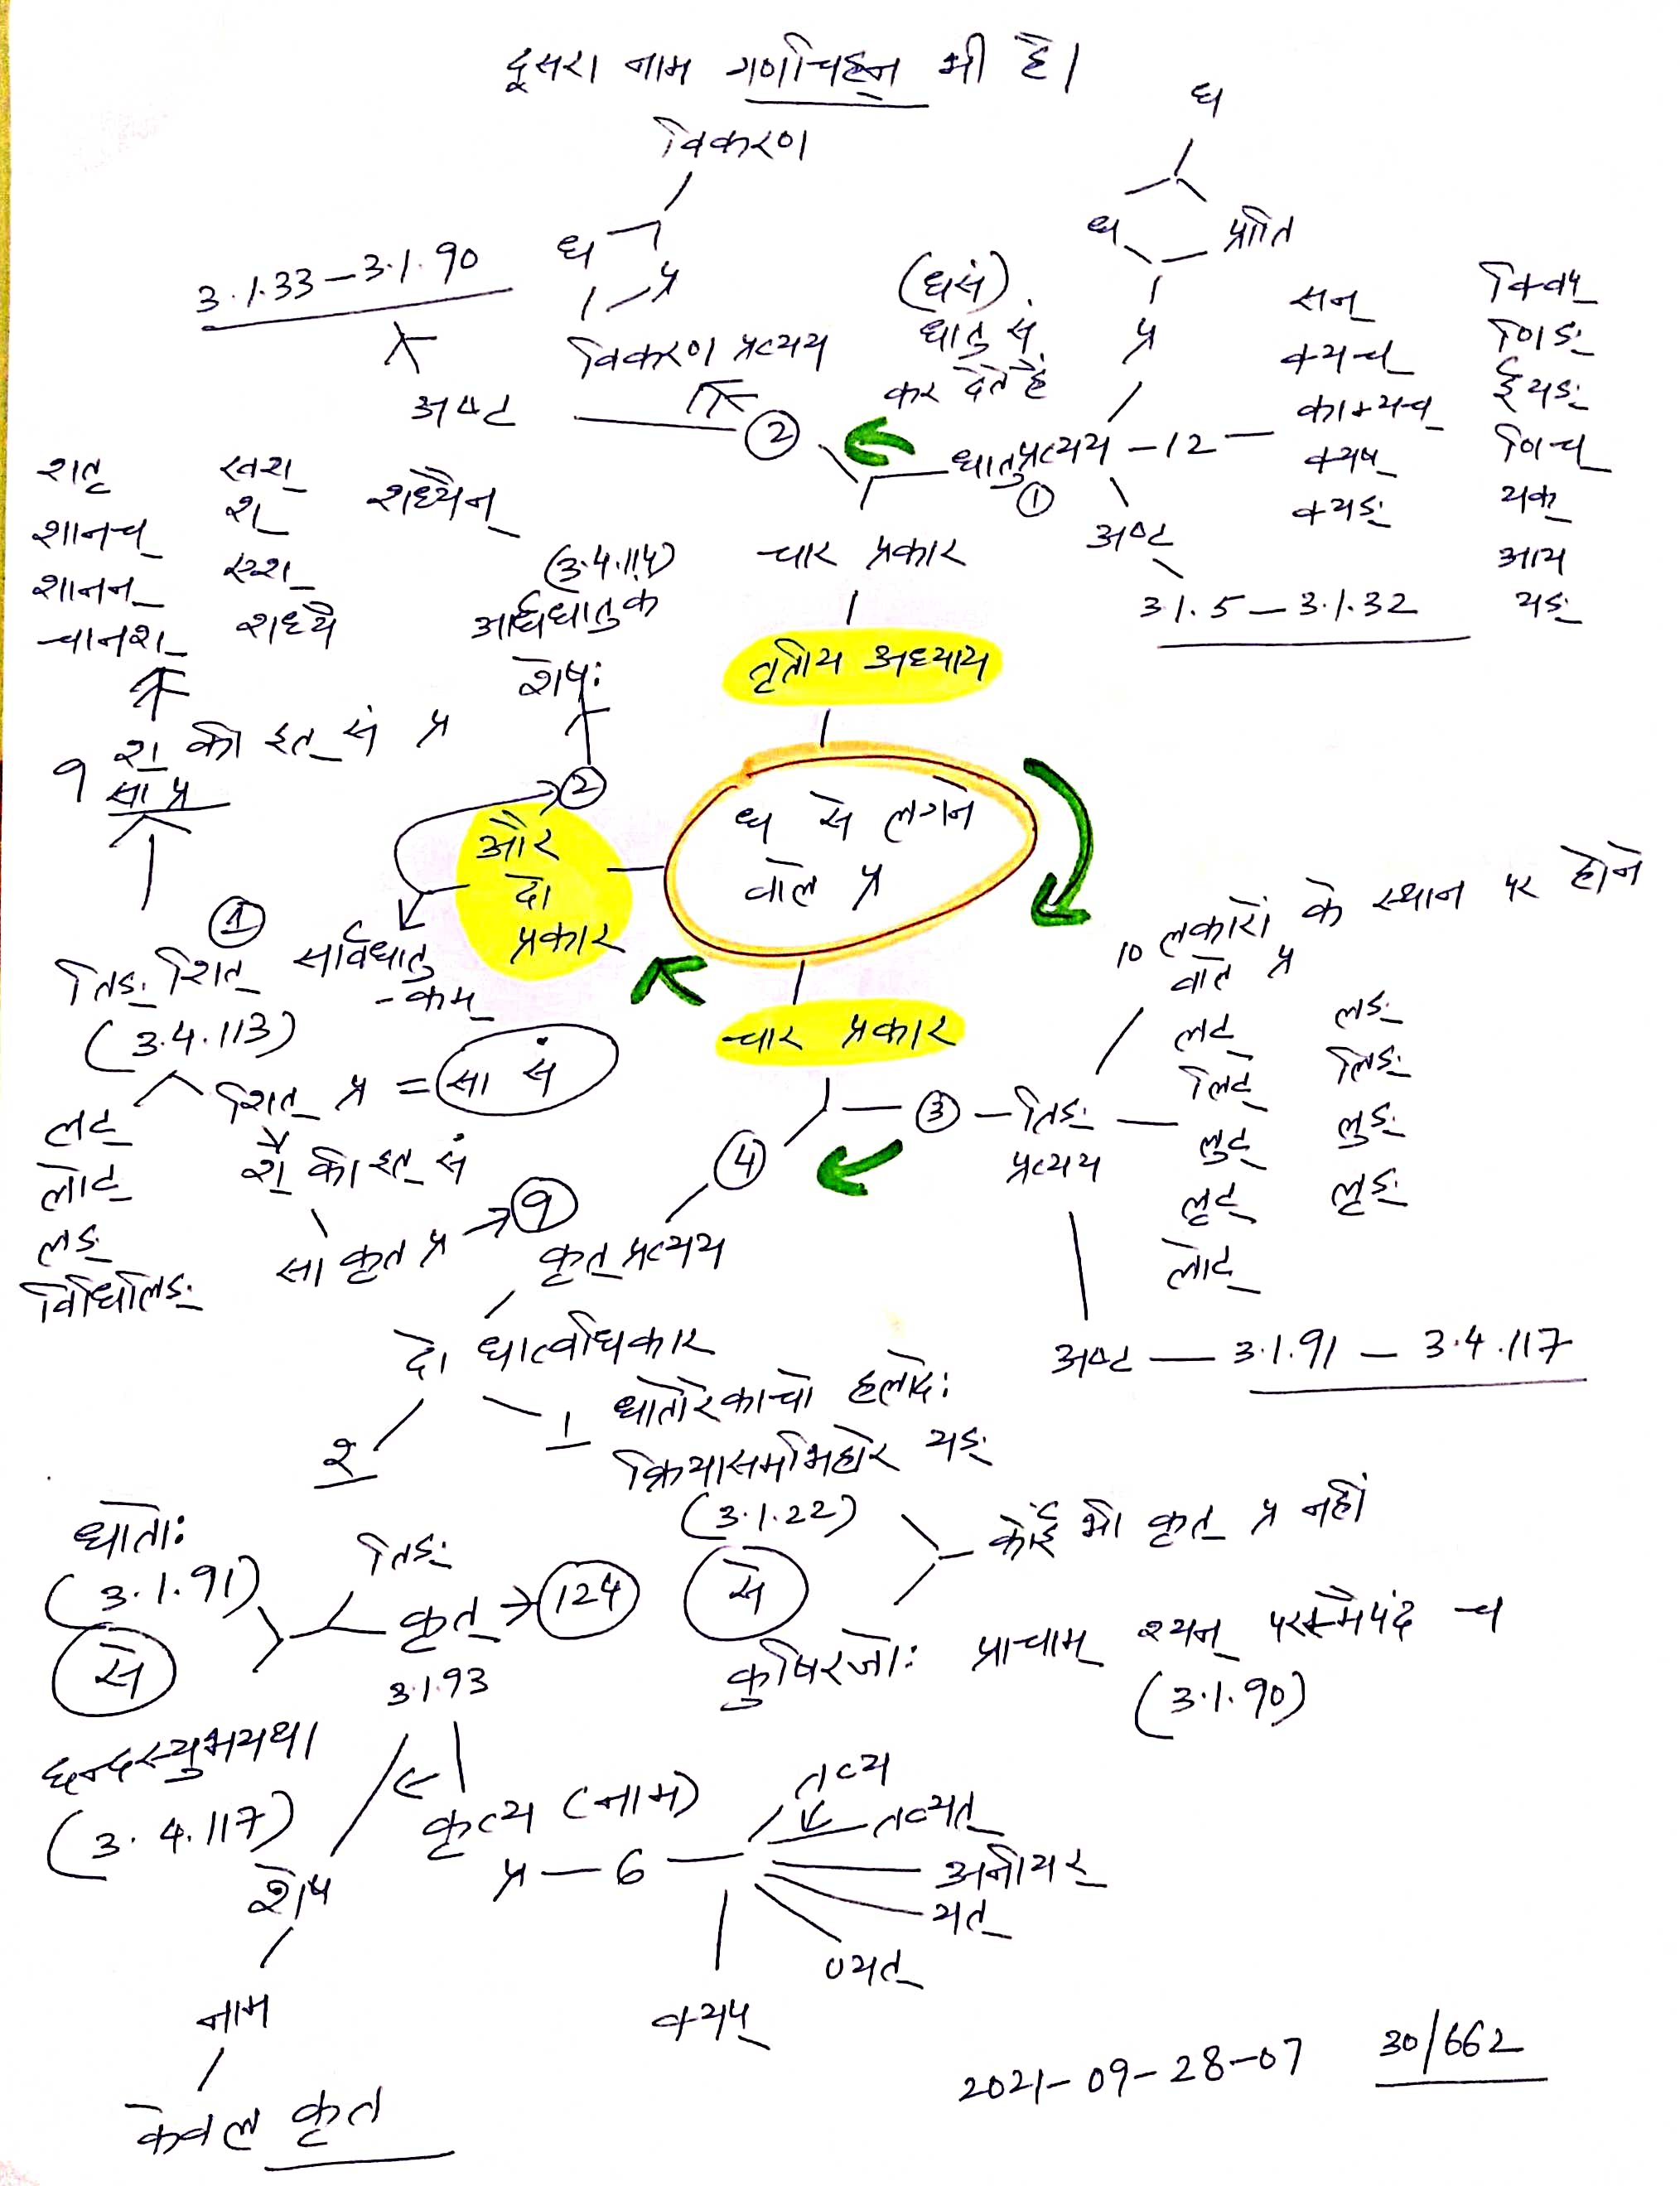 दूसरा नाम गणचिह्न भी है।
विकरण
ध
प्र
विकरण प्रत्यय
3.1.33 – 3.1.90
अष्ट
②
ध
ध
प्राति
प्र
(धसं)
धातु सं
कर देते हैं
धातुप्रत्यय – 12 –
①
अष्ट
3.1.5 – 3.1.32
सन्
क्यच्
काम्यच्
क्यष्
क्यङ्
क्विप्
णिङ्
ईयङ्
णिच्
यक्
आय
यङ्
चार प्रकार
तृतीय अध्याय
शतृ
शानच्
शानन्
चानश्
खश्
श
एश्
शध्यै
शध्यैन्
(3.4.114)
आर्धधातुक
शेषः
②
9 श् की इत् सं प्र
सा प्र
और
दो
प्रकार
ध से लगने
वाले प्र
①
तिङ् शित्
सार्वधातु
-कम्
(3.4.113)
शित् प्र = सा सं
श् की इत् सं
सा कृत् प्र → 9
लट्
लोट्
लङ्
विधिलिङ्
चार प्रकार
③ – तिङ्
प्रत्यय
④
कृत् प्रत्यय
10 लकारों के स्थान पर होने
वाले प्र
लट्
लिट्
लुट्
लृट्
लोट्
लङ्
लिङ्
लुङ्
लृङ्
अष्ट — 3.1.91 – 3.4.117
दो धात्वधिकार
1
धातोरेकाचो हलादेः
क्रियासमभिहारे यङ्
(3.1.22)
से
कोई भी कृत् प्र नहीं
कुषिरजोः प्राचाम् श्यन् परस्मैपदं च
(3.1.90)
२
धातोः
(3.1.91)
से
तिङ्
कृत् → 124
3.1.93
छन्दस्युभयथा
(3.4.117)
कृत्य (नाम)
प्र – 6 –
तव्य
तव्यत्
अनीयर्
यत्
ण्यत्
क्यप्
शेष
नाम
केवल कृत
2021-09-28-07
30/662